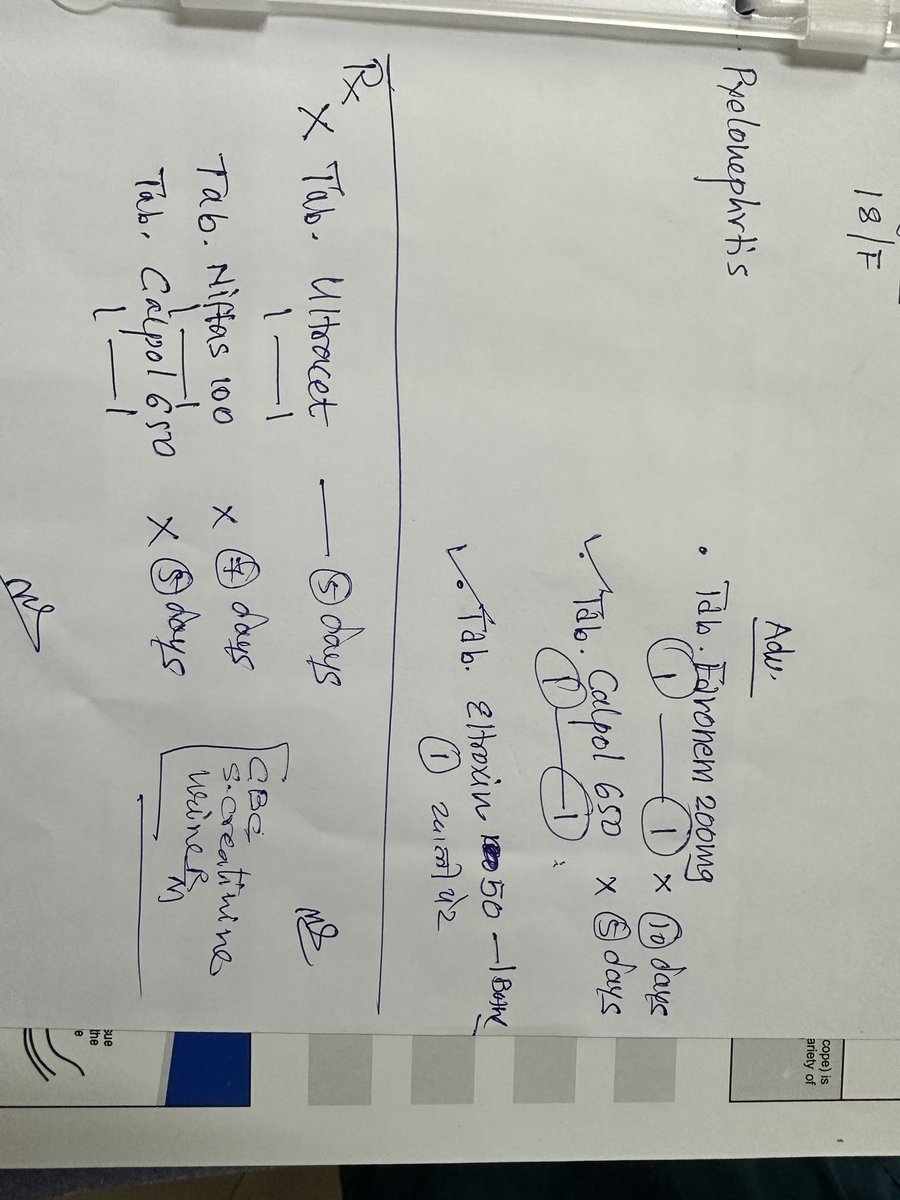 18/F
Pyelonephrtis
Adv.
• Tab. Faronem 200mg
1 — 1 x 10 days
✓• Tab. Calpol 650 x 5 days
1 — 1
✓• Tab. Eltroxin 50 — 1
1
Rx
X Tab. Ultracet — 5 days
1 — 1
Tab. Niftas 100 x 7 days
1 — 1
Tab. Calpol 650 x 5 days
1 — 1
CBC
S. Creatinine
Urine R/M
cope) is
ariety of
sue
the
e